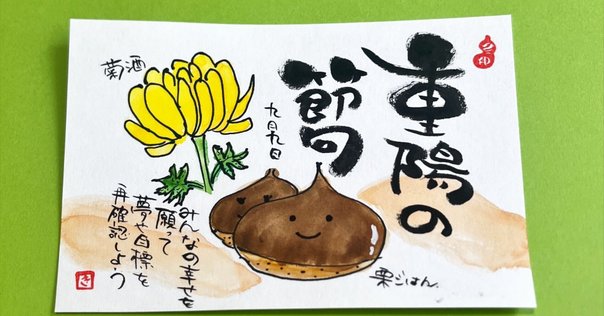 重陽の
節句
九月九日
菊酒
みんなの幸せを
願って
夢や目標を
再確認しよう
栗ごはん